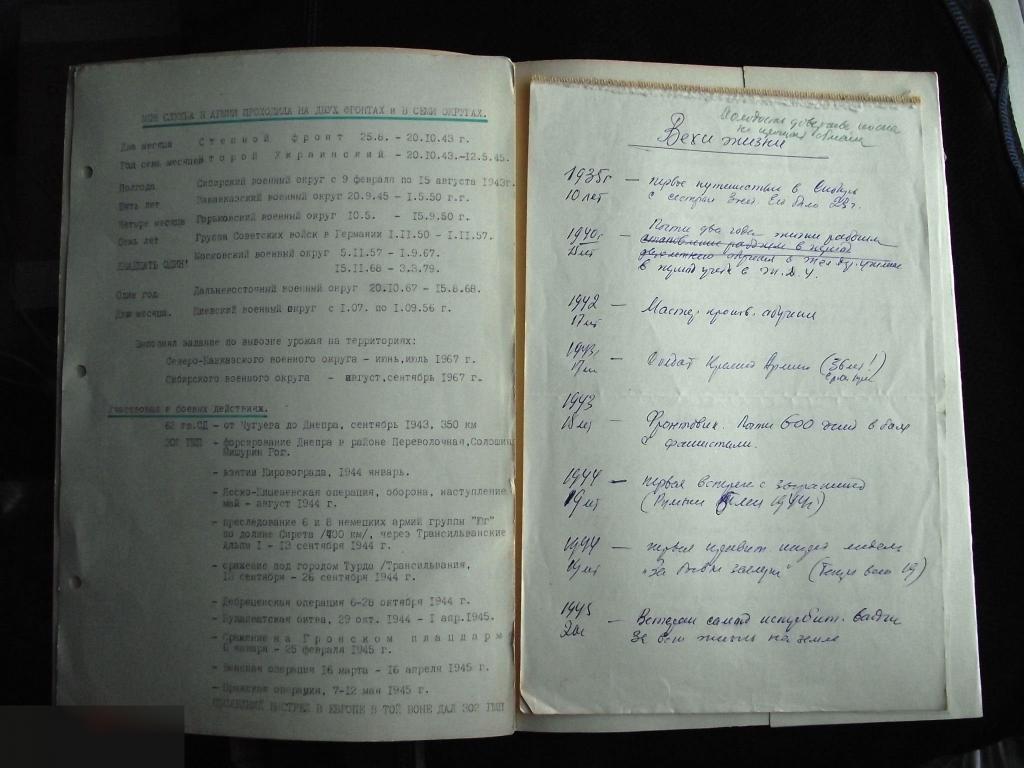 МОЯ СЛУЖБА В АРМИИ ПРОХОДИЛА НА ДВУХ ФРОНТАХ И В СЕМИ ОКРУГАХ.
Два месяца Степной фронт 25.8. - 20.10.43 г.
Год семь месяцев Второй Украинский - 20.10.43.-12.5.45.
Полгода Сибирский военный округ с 9 февраля по 15 августа 1943г.
Пять лет Закавказский военный округ 20.9.45 - 1.5.50 г.г.
Четыре месяца Горьковский военный округ 10.5. - 15.9.50 г.
Семь лет Группа Советских войск в Германии 1.11.50 - 1.11.57.
ДВАДЦАТЬ ОДИН! Московский военный округ 5.11.57 - 1.9.67.
15.11.68 - 3.3.79.
Один год Дальневосточный военный округ 20.10.67 - 15.8.68.
Два месяца. Киевский военный округ с 1.07. по 1.09.56 г.
Выполнял задание по вывозке урожая на территориях:
Северо-Кавказского военного округа - июнь,июль 1967 г.
Сибирского военного округа - август,сентябрь 1967 г.
Участвовал в боевых действиях.
62 гв.СД - от Чугуева до Днепра, сентябрь 1943, 350 км
302 ГМП - форсирование Днепра в районе Переволочная,Солошин
Мишурин Рог.
- взятии Кировограда, 1944 январь.
- Ясско-Кишеневская операция, оборона, наступление
май - август 1944 г.
- преследование 6 и 8 немецких армий группы "Юг"
по долине Сирета /400 км/, через Трансильванские
Альпы 1 - 13 сентября 1944 г.
- сражение под городом Турда /Трансильвания,
13 сентября - 26 сентября 1944 г.
- Дебреценская операция 6-28 октября 1944 г.
- Будапештская битва, 29 окт. 1944 - 1 апр.1945.
- Сражение на Гронском плацдарм
6 января - 25 февраля 1945 г.
- Венская операция 16 марта - 16 апреля 1945 г.
- Пражская операция, 7-12 мая 1945 г.
ПОСЛЕДНИЙ ВЫСТРЕЛ В ЕВРОПЕ В ТОЙ ВОЙНЕ ДАЛ 302 ГМП
Вехи жизни
1935г — первое путешествие в Сибирь
10 лет с сестрой Ей было 23 г.
1940г — Почти два года жизни
15 лет
в
1942 — Мастер произв. обучения
17 лет
1943г — Солдат Красной Армии (36 лет!)
17 лет
1943 — Фронтовик. Почти 600 дней в боях
18 лет с фашистами.
1944 — первая встреча с заграницей
19 лет (Румыния 1944г)
1944 — первая медаль
19 лет "За боевые заслуги" (Теперь всего 19)
1945 — Ветеран самой истребит. войны
20 л за всю жизнь на земле